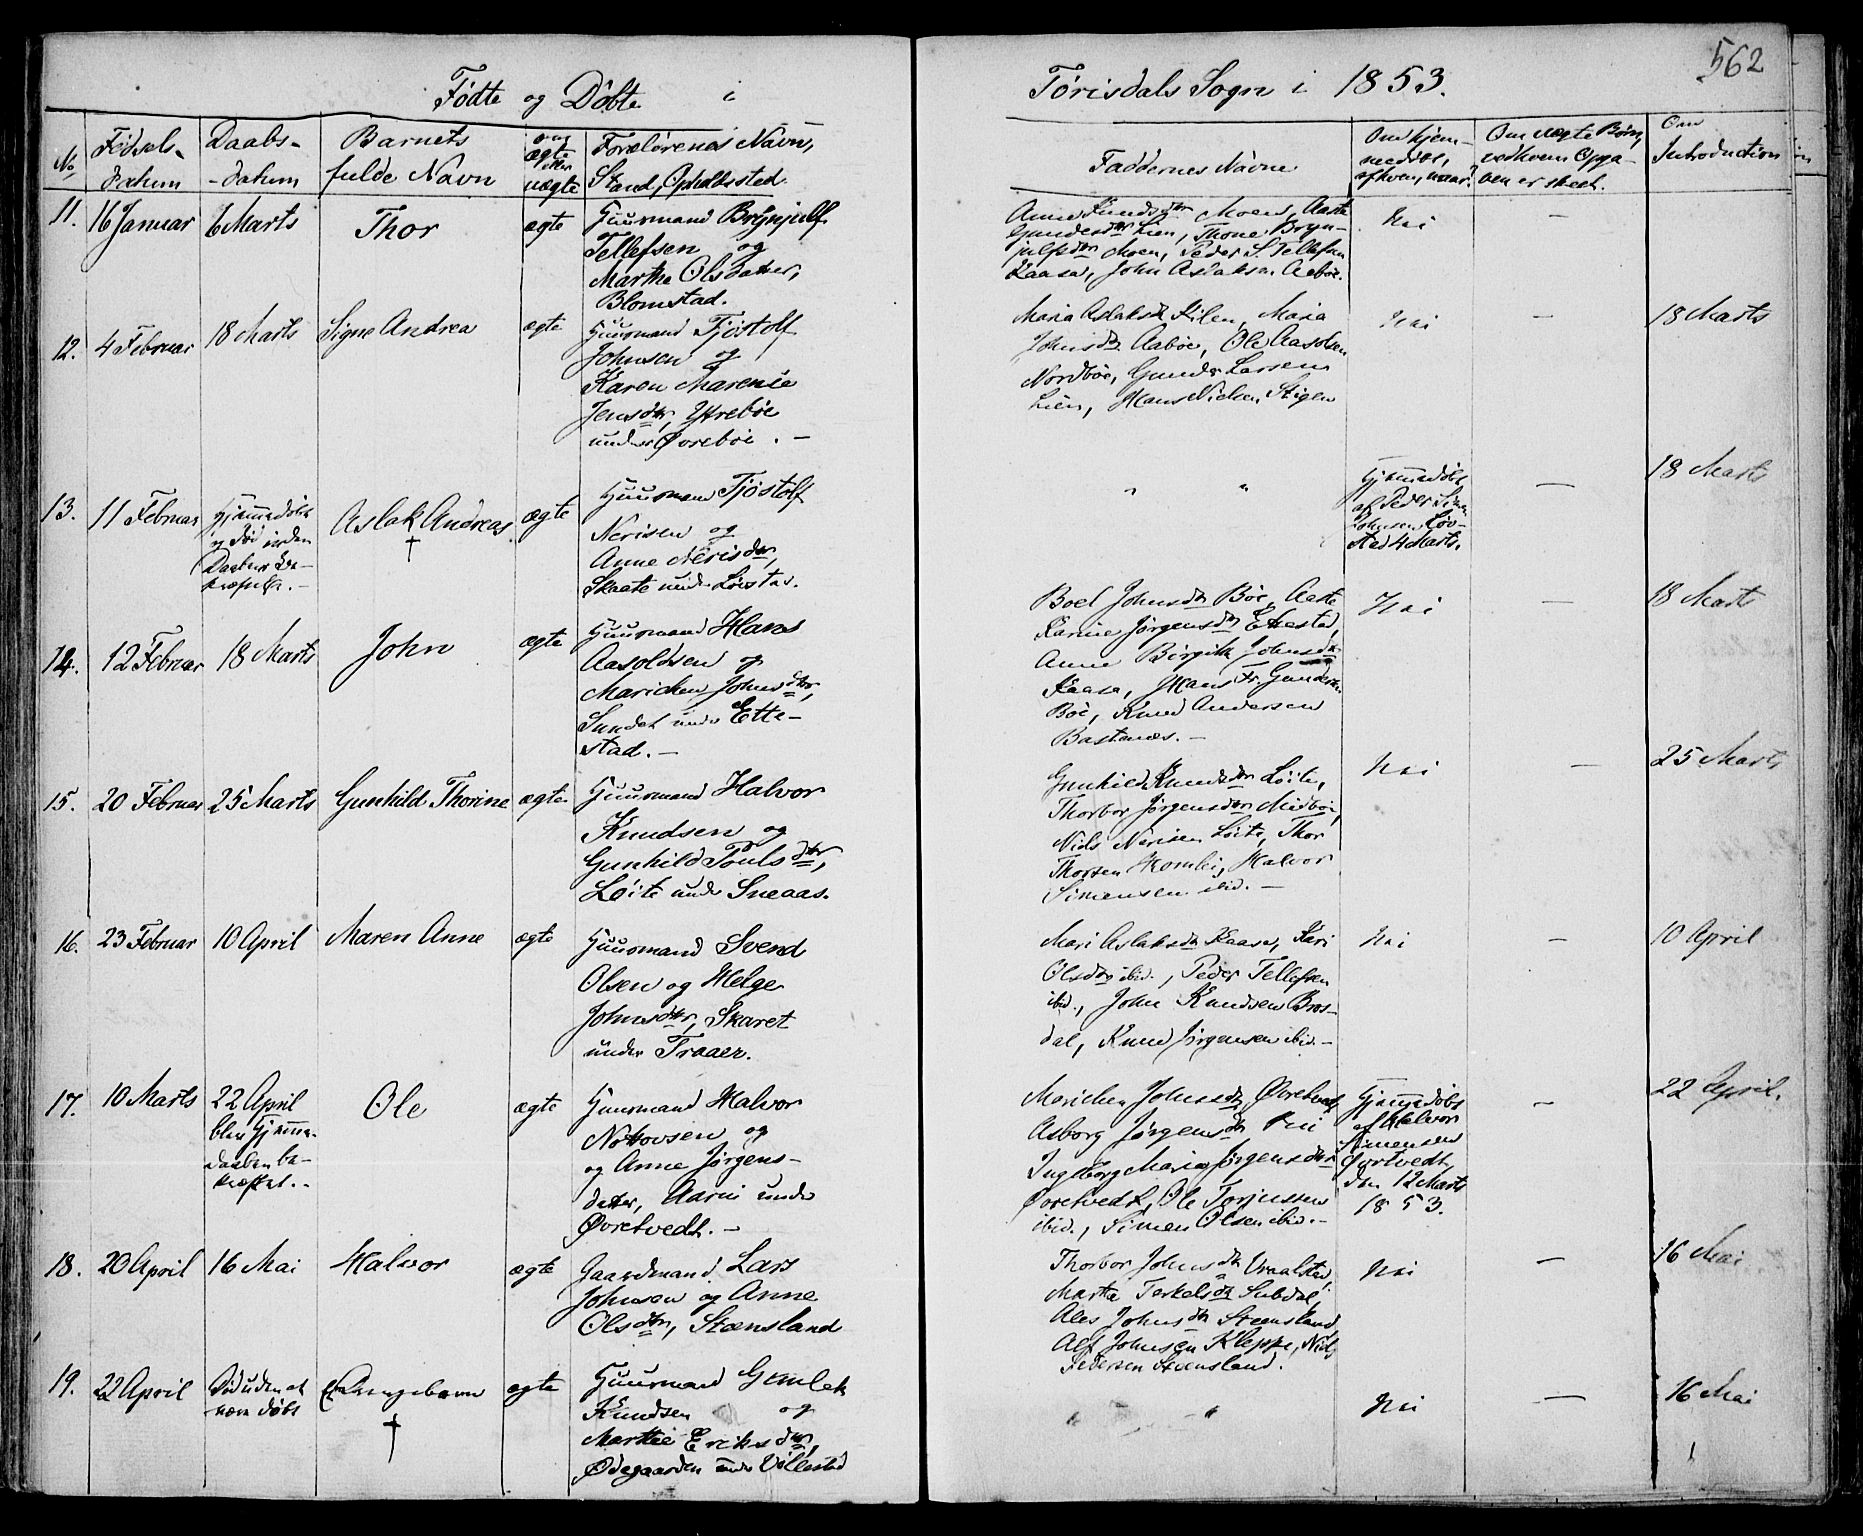 562
Fødte og Døbte i Tørisdals Sogn i 1853.
No
Fødsels-
datum
Daabs-
datum
Barnets
fulde Navn
om
ægte
eller
uægte
Forældrenes Navn,
Stand, Opholdssted.
Faddernes Navne
Om hjem-
medøbt,
af hvem, naar?
Om uægte Børn,
ved hvem Opga-
ven er skeet.
Om
Introduction
11. 16 Januar 6 Marts Thor ægte
Huusmand Brynjulf
Tellefsen og
Marthe Olsdatter,
Blomstad.
Anne Knudsdtr Moen, Aaste
Gundersdtr Lien, Thone Bryn-
julfsdtr Moen, Peder S. Tellefsen
Kaasa, John Aslaksen Aaboe.
Nei —
12. 4 Februar 18 Marts Signe Andrea ægte
Huusmand Tjøstolf
Johnsen og
Karen Marenie
Jensdtr, Ytrebøe
under Øvrebøe. —
Maria Aslaksdtr Kilen, Maria
Johnsdtr Aabøe, Ole Aasolsen
Nordbøe, Gunder Larsen
Lien, Hans Nielsen Stigen
Nei — 18 Marts
13. 11 Februar
Hjemmedøbt
og Død inden
Daabens be-
kræftelse. —
Aslak Andreas †
ægte
Huusmand Tjøstolf
Nerisen og
Anne Nerisdtr,
Skaate under Løvstad.
" "
Hjemmedøbt
af Peder Simen
Johnsen Løv-
stad 4 Marts.
— 18 Marts
14. 12 Februar 18 Marts John ægte
Huusmand Hans
Aasoldsen og
Maricken Johnsdtr,
Sundet under Ette-
stad. —
Boel Johnsdtr Bøe, Aaste
Karine Jørgensdtr Ettestad,
Anne Birgitte Johnsdtr
Kaasa, Hans Fr. Gundersen
Bøe, Knud Andersen
Bastenæs. —
Nei — 18 Marts
15. 20 Februar 25 Marts Gunhild Thorine ægte
Huusmand Halvor
Knudsen og
Gunhild Poulsdtr,
Løite under Sneaas.
Gunhild Knudsdtr Løite,
Thorbor Jørgensdtr Midbøe,
Niels Nerisen Løite, Thor
Thorsen Homlei, Halvor
Simensen ibid. —
Nei — 25 Marts
16. 23 Februar 10 April Maren Anne ægte
Huusmand Svend
Olsen og Helge
Johnsdtr, Skaret
under Traaer.
Mari Aslaksdtr Kaasa, Kari
Olsdtr ibid., Peder Tellefsen
ibid., John Knudsen Bros-
dal, Knud Jørgensen ibid. —
Nei — 10 April
17. 10 Marts
22 April
blev Hjemme-
daaben be-
kræftet. —
Ole ægte
Huusmand Halvor
Nottovsen og
og Anne Jørgens-
datter, Aarni under
Øvretvedt. —
Maricken Johnsdtr Øvretvedt,
Asborg Jørgensdtr
Ingeborg Maria Jørgensdtr
Øvretvedt, Ole Torjussen
ibid., Simen Olsen ibid. —
Hjemmedøbt
af Halvor
Simensen
Øvretvedt,
den 12 Marts
1853.
— 22 April.
18. 20 April 16 Mai Halvor ægte
Gaardmand Lars
Johnsen og Anne
Olsdtr, Steensland
Thorbor Johnsdtr Vraalstad,
Martha Terkelsdtr Subdal,
Ales Johnsdtr Steensland
Alf Johnsen Kleppe, Niels
Pedersen Steensland.
Nei — 16 Mai
19. 22 April
Død uden at
være døbt
Drengebarn †
ægte
Huusmand Gunlek
Knudsen og
Marthe Eriksdtr,
Ødegaarden under Villestad
" "
Nei — 16 Mai